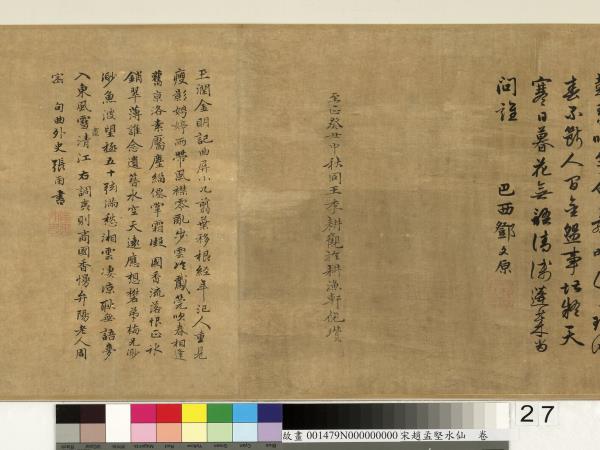 寒日暮花無語清淺蓬萊當
問誰 巴西鄧文原
中秋同王季耕觀於耕漁軒倪瓚
玉潤金明記曲屏小几翦葉移根經年汜人重見
瘦影娉婷雨帶風襟零亂步雲冷鵞筦吹春相逢
舊京洛素靨塵緇僊掌霜凝國香流落恨正冰
銷翠薄誰念遺簪水空天遠應想礬弟梅兄渺
渺魚波望極五十弦滿愁湘雲淒涼耿無語夢
入東風雪盡清江右詞夷則商國香慢弁陽老人周
密 句曲外史張雨書
27
故畫 001479N000000000 宋趙孟堅水仙 卷